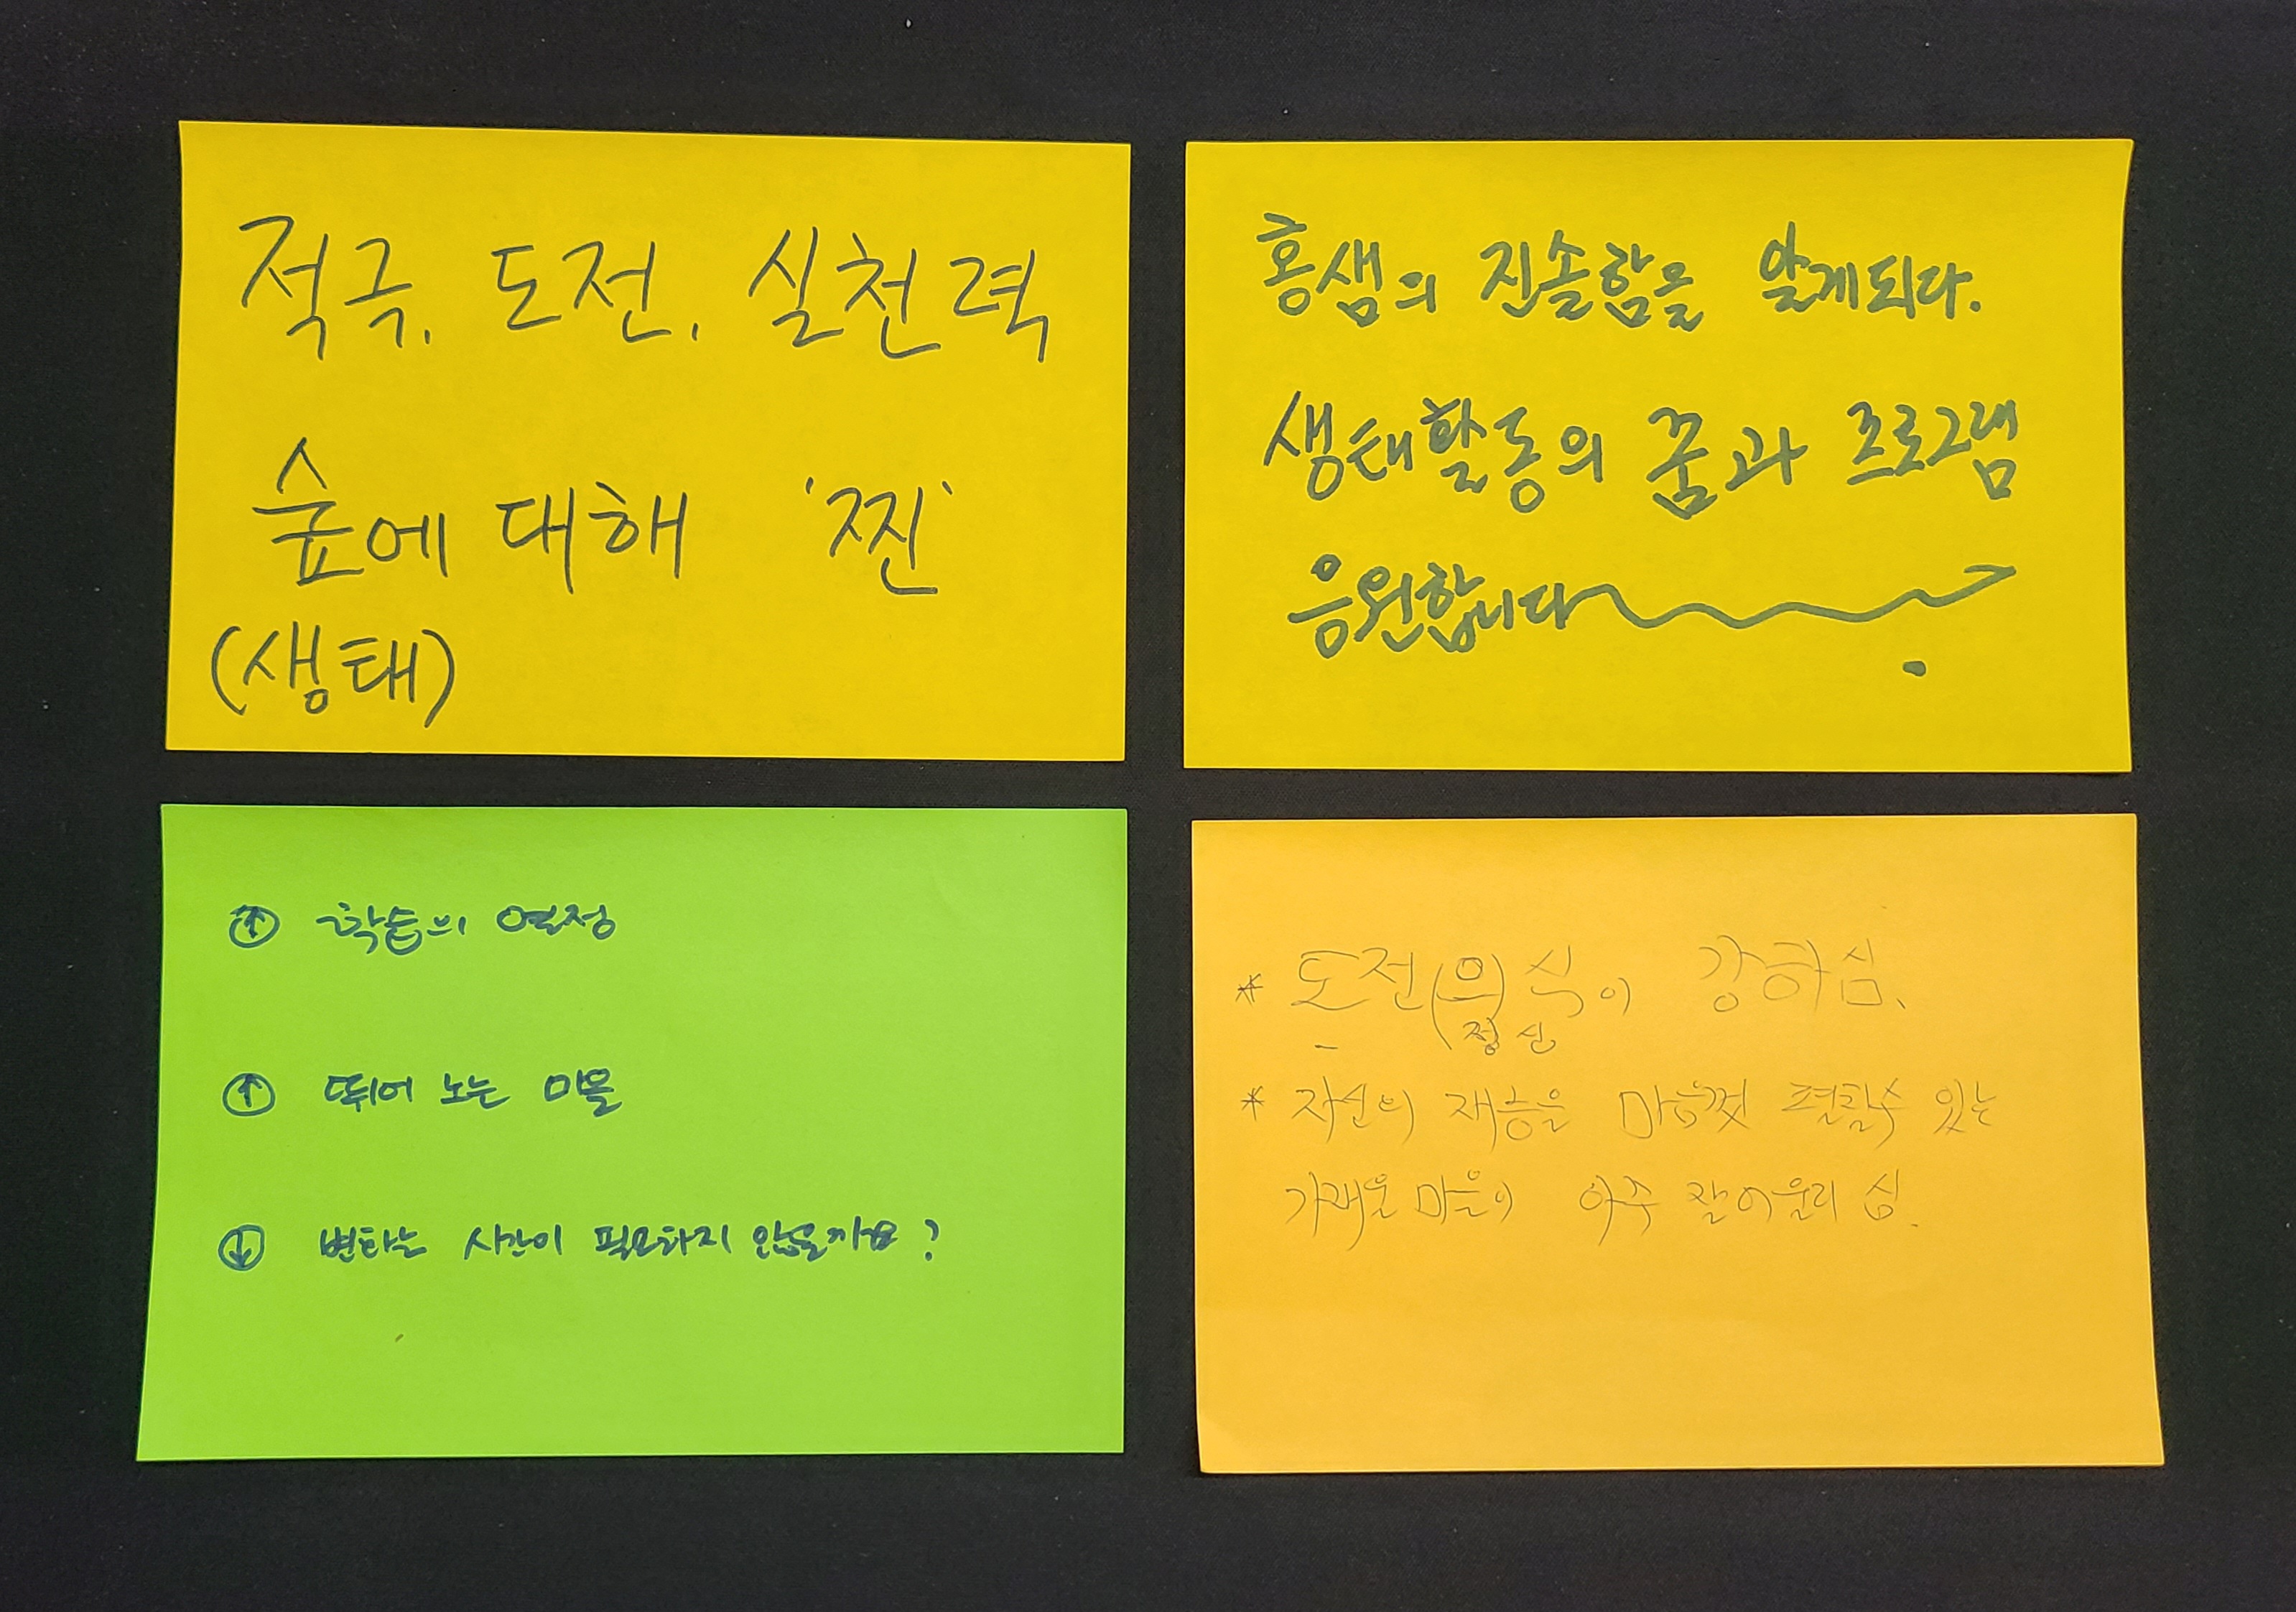 적극, 도전, 실천력
숲에 대해 '찐'
(생태)
홍샘의 진솔함을 알게되다.
생태활동의 꿈과 프로그램
응원합니다
↑ 학습의 열정
↑ 뛰어 노는 마을
↓ 변하는 시간이 필요하지 않을까요?
* 도전(의)식이 강하심.
정신
* 자신의 재능을 마음껏 펼칠수 있는
가재울 마을이 아주 잘어울리심.